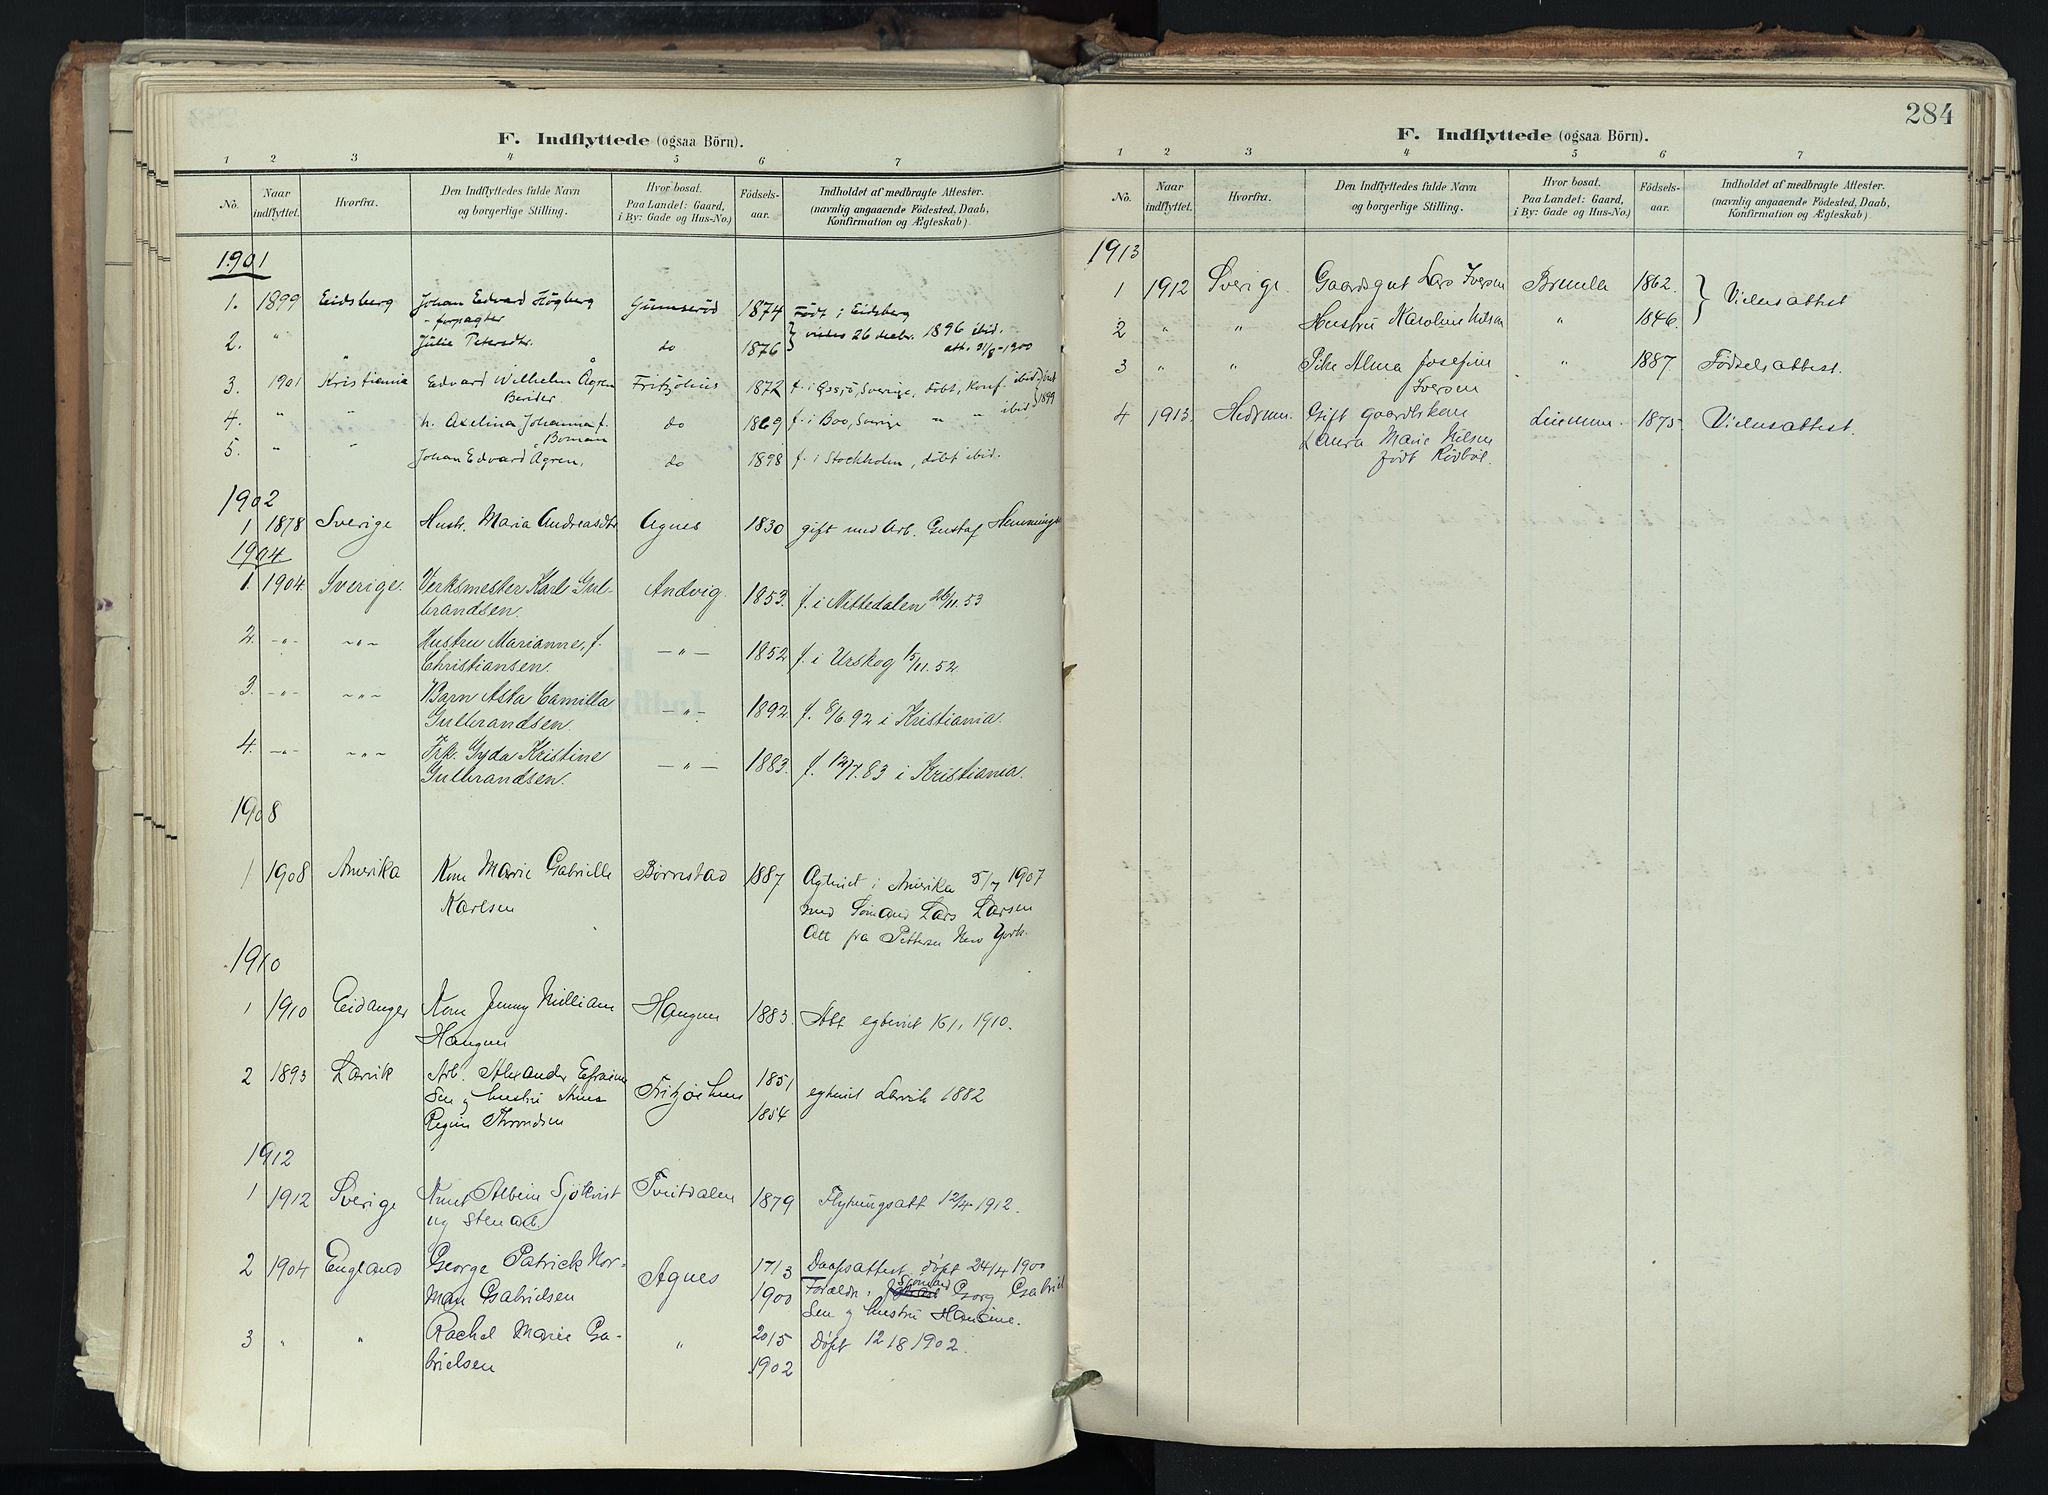 F. Indflyttede (ogsaa Börn).
1 2 3 4 5 6 7
No. Naar indflyttet. Hvorfra. Den Indflyttedes fulde Navn og borgerlige Stilling. Hvor bosat. Paa Landet: Gaard, i By: Gade og Hus-No.) Födsels-aar. Indholdet af medbragte Attester. (navnlig angaaende Födested, Daab, Konfirmation og Ægteskab).
1901
1. 1899 Eidsberg Johan Edvard Högberg Gumseröd 1874 Födt i Eidsberg
forpagter
2. " " Julie Petersdtr. do 1876 viedes 26 decbr. 1896 ibid.
att. 31/8-1900
3. 1901 Kristiania Edvard Wilhelm Ågren Fritzöhus 1872 f. i Sverige, döbt, konf. ibid
Berider 1899
4. " " h. Axelina Johanna f. do 1869 f. i Boo, Sverige " " ibid
Boman
5. " " Johan Edvard Ågren, do 1898 f. i Stockholm, döbt ibid.
1902
1 1878 Sverige Hustr. Maria Andreasdtr Agnes 1830 gift med Arb. Gustaf Hemmings
1904
1. 1904 Sverige. Verksmester Karl Gul- Andvig. 1853. f. i Nittedalen 26/11.53
brandsen.
2. -"- -"- Hustru Marianne, f. -"- 1852 f. i Urskog 15/11.52.
Christiansen.
3. -"- -"- Barn Asta Camilla -"- 1892 f. 8/6 92 i Kristiania.
Gulbrandsen.
4. -"- -"- Frk. Gyda Kristine -"- 1883. f. 12/7.83 i Kristiania.
Gulbrandsen.
1908
1 1908 Amerika Kone Marie Gabrielle Børnstad 1887 Agteviet i Amerika 5/7 1907
Karlsen med Sømand Lars Larsen
Att fra Pettersen New York.
1910
1 1910 Eidanger Kone Jenny Milliam Haugen 1883. Att egteviet 1910.
Haugen
2 1893 Larvik Arb. Alexander Efraim Fritzøehus 1851 egteviet Larvik 1882
sen og hustru 1854
Regine Throndsen
1912
1 1912 Sverige Knut Albin Sjökvist Tveitdalen 1879 Flytningsatt 12/4 1912.
ug stend.
2 1904 England George Patrick Nor- Agnes 17/3 Daapsattest døpt 24/4 1900
man Gabrielsen 1900 Foræld: Sømand Georg Gabriel
sen og hustru Hansine.
3 " " Rachel Marie Ga- " 20/5 Døpt 12/8 1902.
brielsen 1902
284
F. Indflyttede (ogsaa Börn).
1 2 3 4 5 6 7
No. Naar indflyttet. Hvorfra. Den Indflyttedes fulde Navn og borgerlige Stilling. Hvor bosat. Paa Landet: Gaard, i By: Gade og Hus-No.) Födsels-aar. Indholdet af medbragte Attester. (navnlig angaaende Födested, Daab, Konfirmation og Ægteskab).
1913
1 1912 Sverige. Gaardsgut Lars Iversen Brunla 1862. Vielsesattest
2 " " Hustru Karoline Nilsen " 1846.
3 " " Pike Alma Josefine " 1887. Fødselsattest.
Iversen
4 1913. Hedrum. Gift gaardbkone 1875. Vielsesattest.
Laura Marie Nilsen
født Rødbøl.